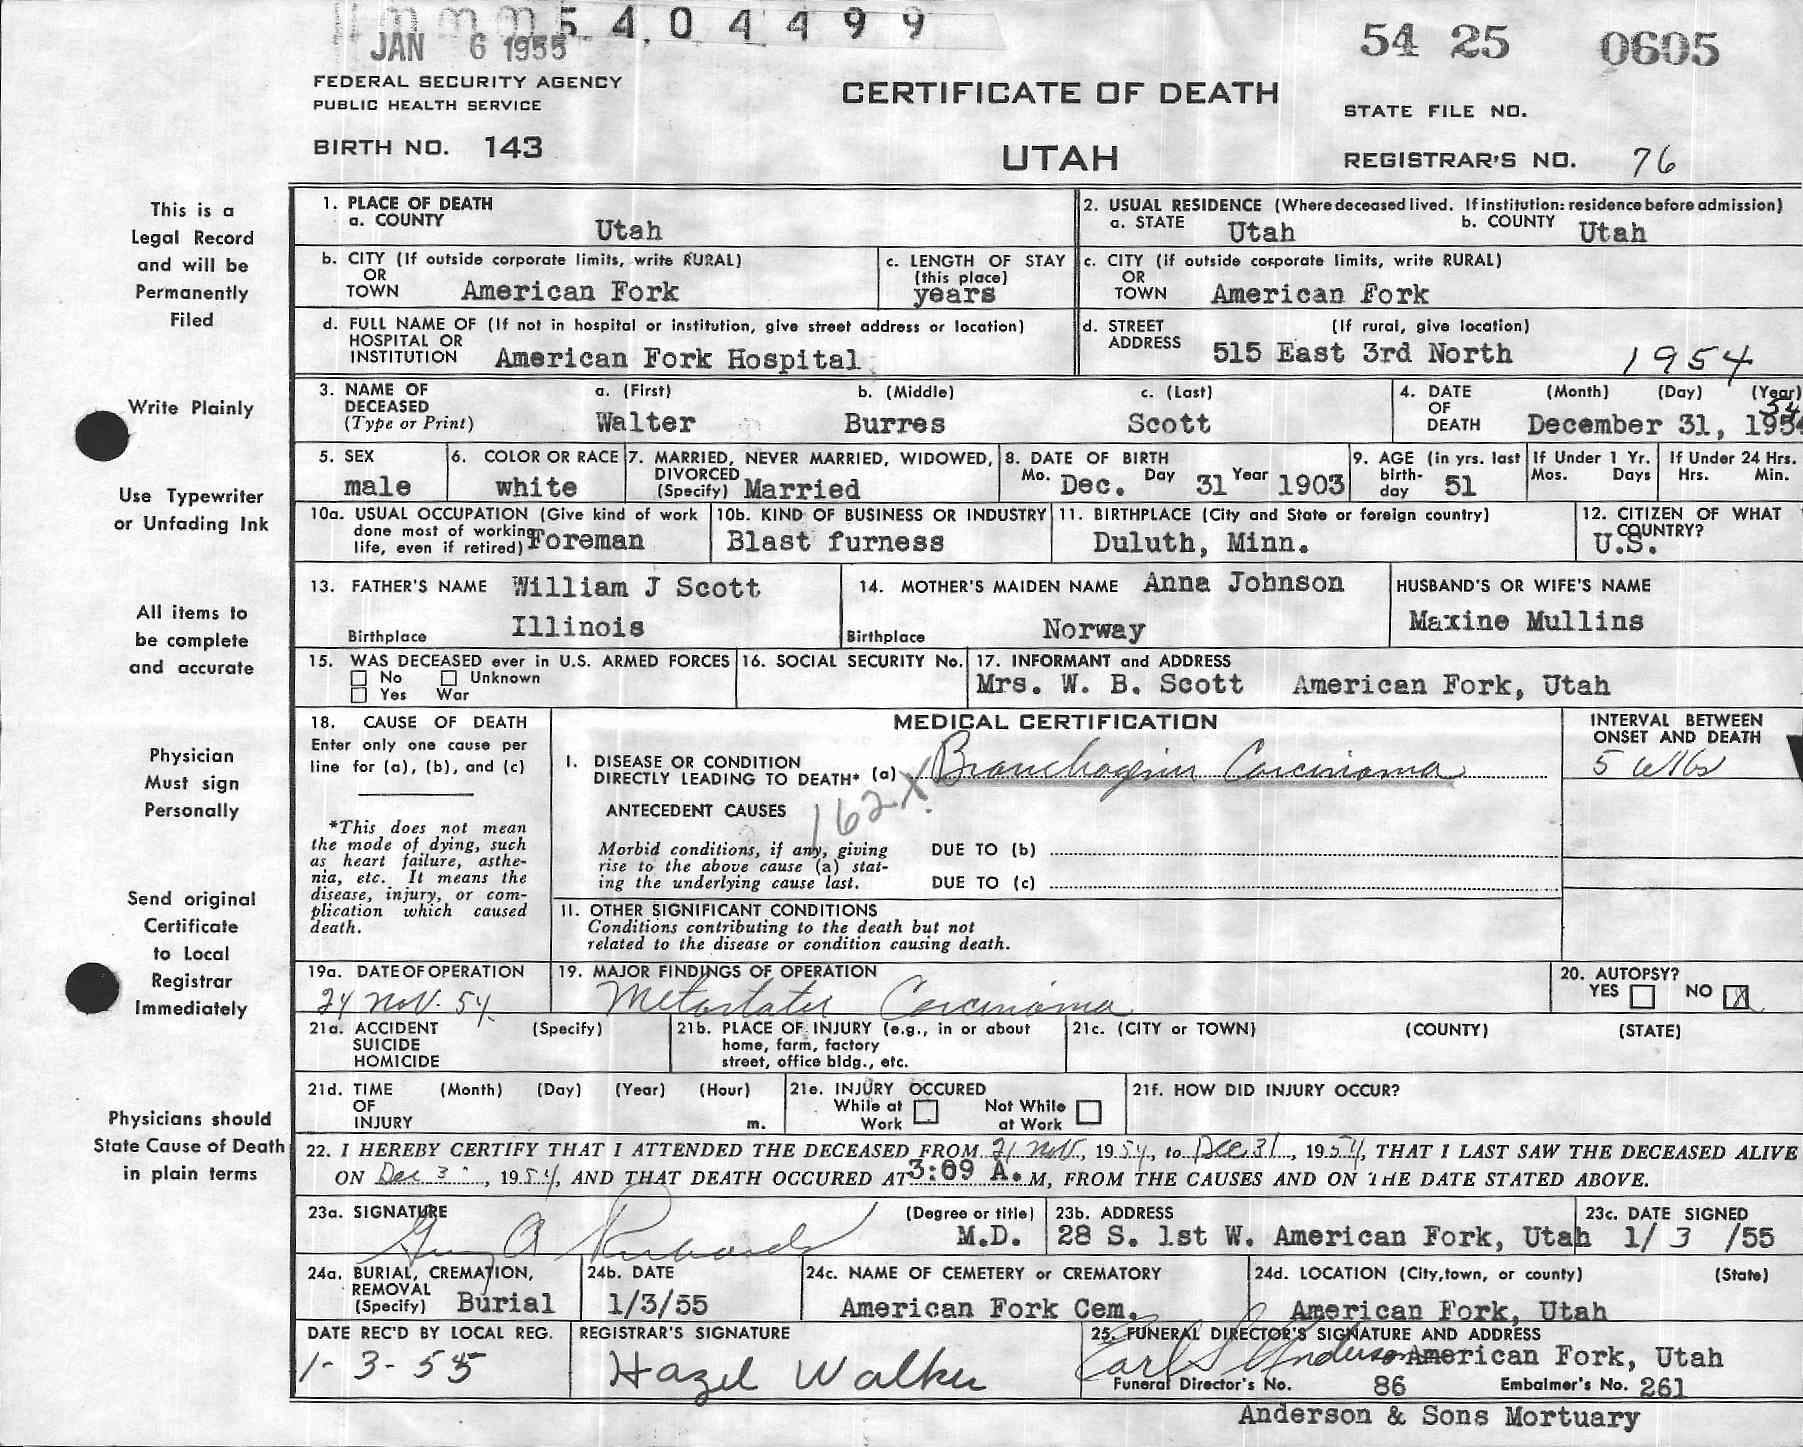 5 4 0 4 4 9 9
JAN 6 1955
54 25 0605
FEDERAL SECURITY AGENCY
PUBLIC HEALTH SERVICE
CERTIFICATE OF DEATH
STATE FILE NO.
BIRTH NO. 143
UTAH
REGISTRAR'S NO. 76
This is a
Legal Record
and will be
Permanently
Filed
Write Plainly
Use Typewriter
or Unfading Ink
All items to
be complete
and accurate
Physician
Must sign
Personally
Send original
Certificate
to Local
Registrar
Immediately
Physicians should
State Cause of Death
in plain terms
1. PLACE OF DEATH
a. COUNTY Utah
2. USUAL RESIDENCE (Where deceased lived. If institution: residence before admission)
a. STATE Utah b. COUNTY Utah
b. CITY (If outside corporate limits, write RURAL)
OR
TOWN American Fork
c. LENGTH OF STAY
(this place)
years
c. CITY (if outside corporate limits, write RURAL)
OR
TOWN American Fork
d. FULL NAME OF (If not in hospital or institution, give street address or location)
HOSPITAL OR
INSTITUTION American Fork Hospital
d. STREET (If rural, give location)
ADDRESS 515 East 3rd North
1954
3. NAME OF DECEASED
(Type or Print)
a. (First) b. (Middle) c. (Last)
Walter Burres Scott
4. DATE OF DEATH (Month) (Day) (Year)
54
December 31, 1954
5. SEX
male
6. COLOR OR RACE
white
7. MARRIED, NEVER MARRIED, WIDOWED,
DIVORCED
(Specify) Married
8. DATE OF BIRTH
Mo. Dec. Day 31 Year 1903
9. AGE (in yrs. last
birth-
day 51
If Under 1 Yr.
Mos. Days
If Under 24 Hrs.
Hrs. Min.
10a. USUAL OCCUPATION (Give kind of work
done most of working
life, even if retired) Foreman
10b. KIND OF BUSINESS OR INDUSTRY
Blast furness
11. BIRTHPLACE (City and State or foreign country)
Duluth, Minn.
12. CITIZEN OF WHAT
COUNTRY?
U.S.
13. FATHER'S NAME William J Scott
Birthplace Illinois
14. MOTHER'S MAIDEN NAME Anna Johnson
Birthplace Norway
HUSBAND'S OR WIFE'S NAME
Maxine Mullins
15. WAS DECEASED ever in U.S. ARMED FORCES
No Unknown
Yes War
16. SOCIAL SECURITY No.
17. INFORMANT and ADDRESS
Mrs. W. B. Scott American Fork, Utah
18. CAUSE OF DEATH
Enter only one cause per
line for (a), (b), and (c)
*This does not mean
the mode of dying, such
as heart failure, asthe-
nia, etc. It means the
disease, injury, or com-
plication which caused
death.
MEDICAL CERTIFICATION
INTERVAL BETWEEN
ONSET AND DEATH
I. DISEASE OR CONDITION
DIRECTLY LEADING TO DEATH* (a) Bronchogenic Carcinoma
5 wks
ANTECEDENT CAUSES
162X
Morbid conditions, if any, giving
rise to the above cause (a) stat-
ing the underlying cause last.
DUE TO (b)
DUE TO (c)
11. OTHER SIGNIFICANT CONDITIONS
Conditions contributing to the death but not
related to the disease or condition causing death.
19a. DATE OF OPERATION
24 Nov. 54
19. MAJOR FINDINGS OF OPERATION
Metastatic Carcinoma
20. AUTOPSY?
YES NO X
21a. ACCIDENT (Specify)
SUICIDE
HOMICIDE
21b. PLACE OF INJURY (e.g., in or about
home, farm, factory
street, office bldg., etc.
21c. (CITY or TOWN) (COUNTY) (STATE)
21d. TIME (Month) (Day) (Year) (Hour)
OF
INJURY m.
21e. INJURY OCCURED
While at Work Not While at Work
21f. HOW DID INJURY OCCUR?
22. I HEREBY CERTIFY THAT I ATTENDED THE DECEASED FROM 21 Nov, 1954, to Dec 31, 1954, THAT I LAST SAW THE DECEASED ALIVE
ON Dec 3, 1954, AND THAT DEATH OCCURED AT 3:09 A. M, FROM THE CAUSES AND ON THE DATE STATED ABOVE.
23a. SIGNATURE (Degree or title)
Guy A Richards M.D.
23b. ADDRESS
28 S. 1st W. American Fork, Utah
23c. DATE SIGNED
1/ 3 /55
24a. BURIAL, CREMATION,
REMOVAL
(Specify) Burial
24b. DATE
1/3/55
24c. NAME OF CEMETERY or CREMATORY
American Fork Cem.
24d. LOCATION (City, town, or county) (State)
American Fork, Utah
DATE REC'D BY LOCAL REG.
1-3-55
REGISTRAR'S SIGNATURE
Hazel Walker
25. FUNERAL DIRECTOR'S SIGNATURE AND ADDRESS
Earl S Anderson American Fork, Utah
Funeral Director's No. 86 Embalmer's No. 261
Anderson & Sons Mortuary